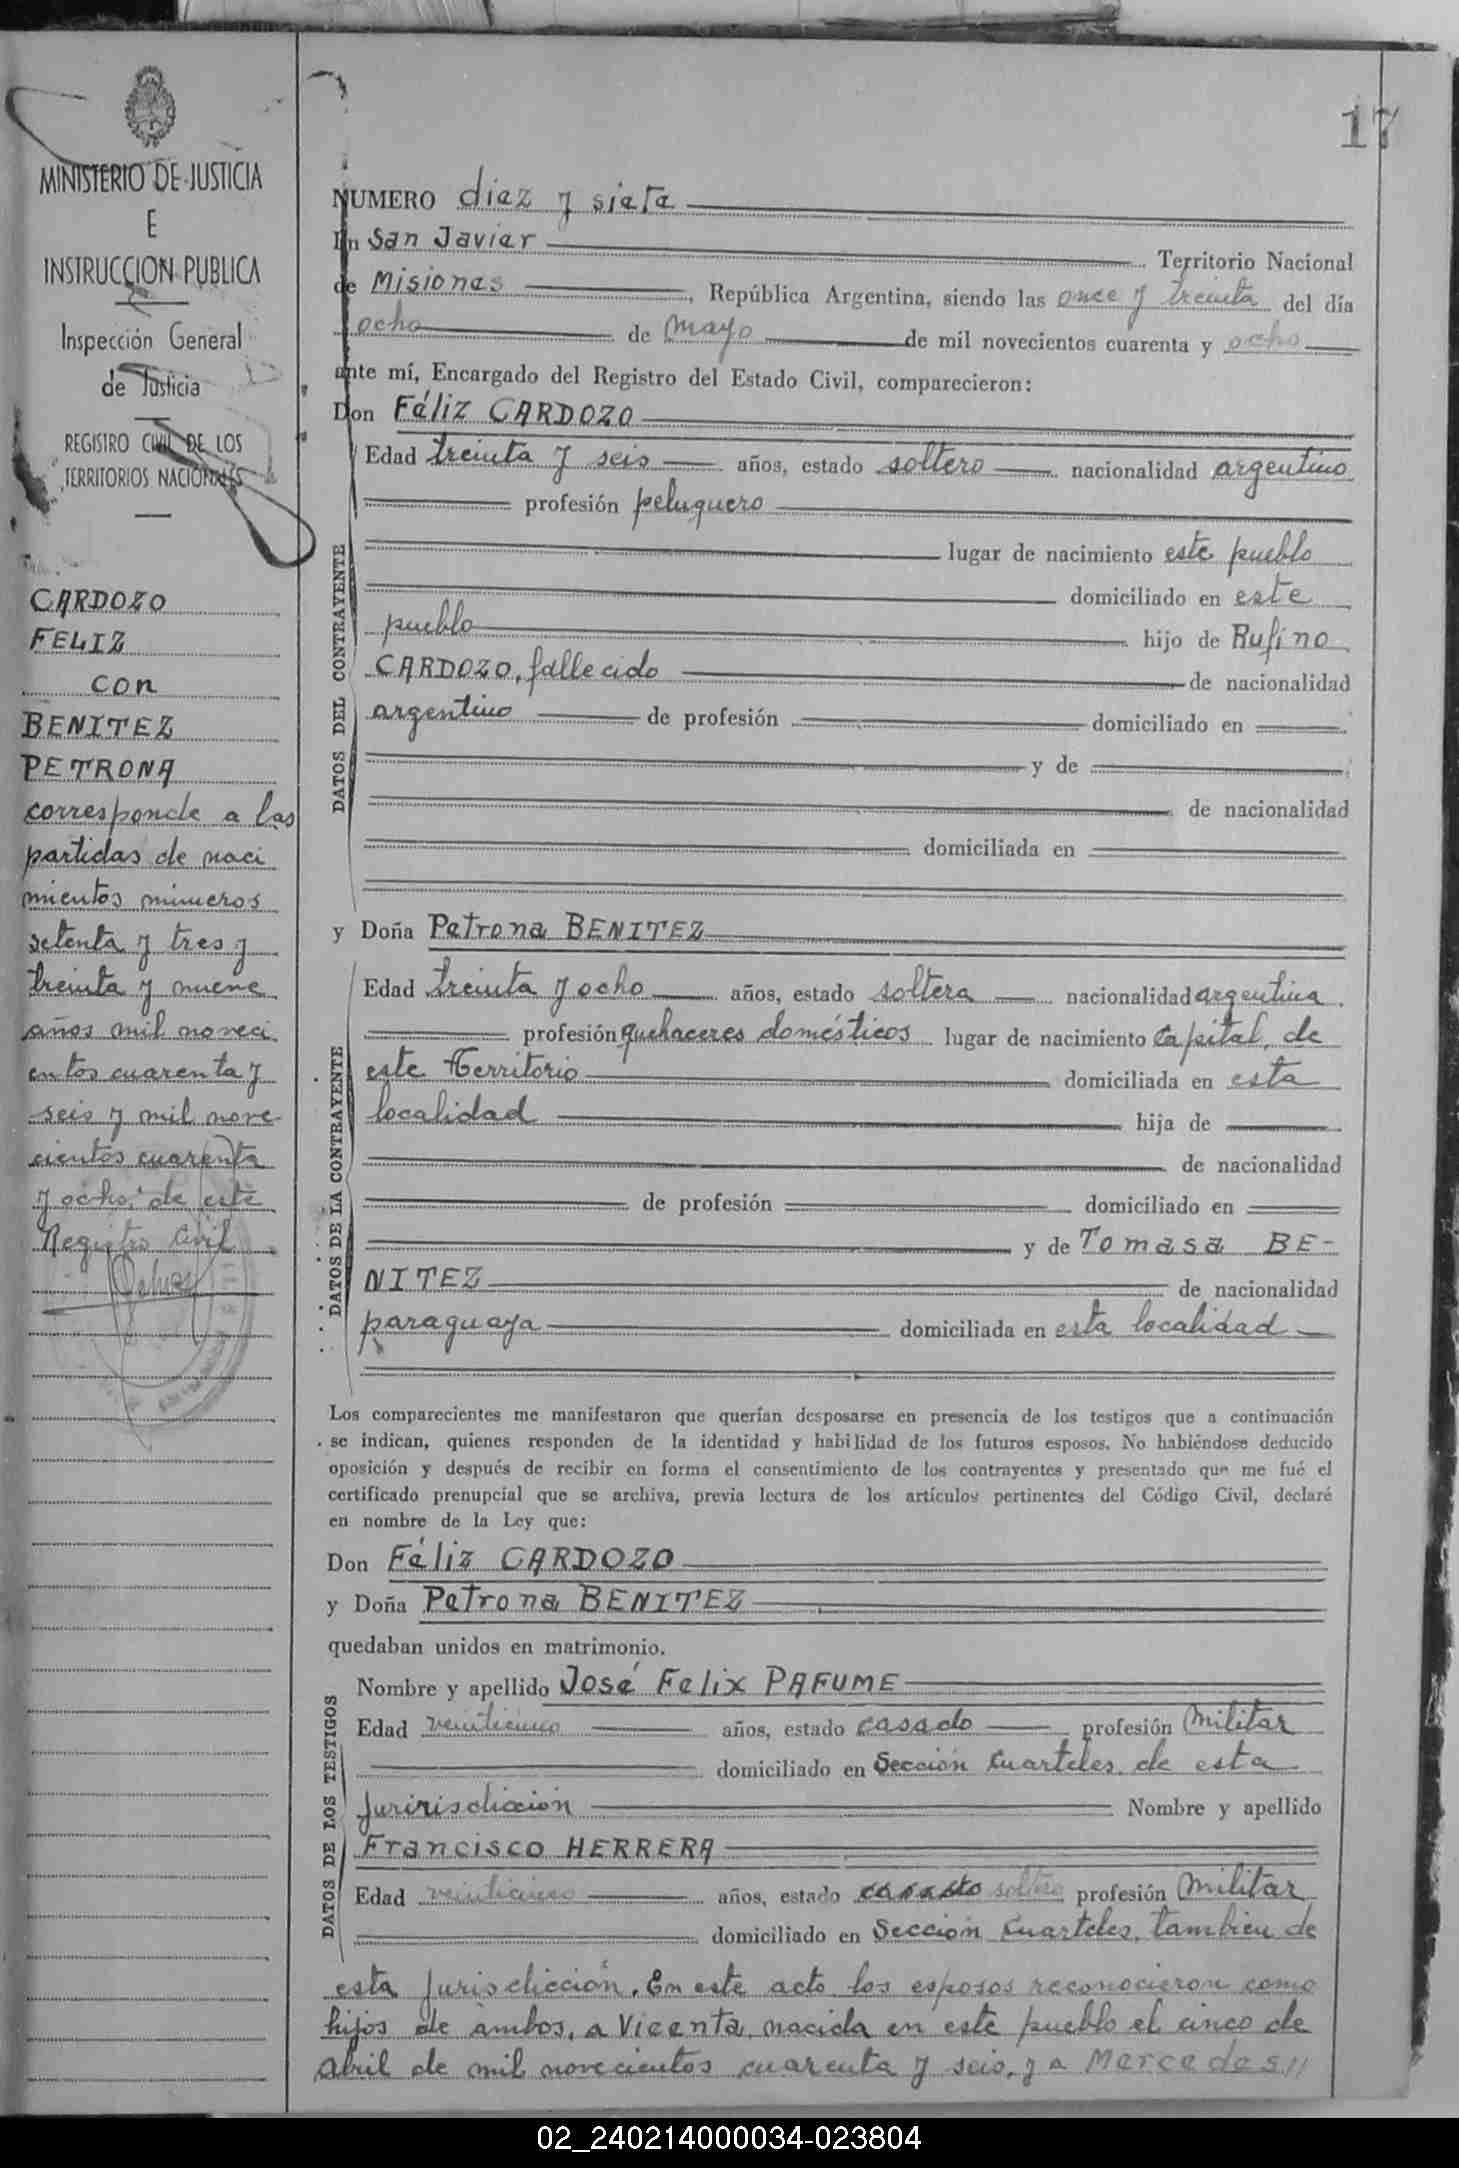 17
MINISTERIO DE JUSTICIA
E
INSTRUCCION PUBLICA
Inspección General
de Justicia
REGISTRO CIVIL DE LOS
TERRITORIOS NACIONALES
CARDOZO
FELIZ
con
BENITEZ
PETRONA
corresponde a las
partidas de naci
mientos números
setenta y tres y
treinta y nueve
años mil noveci
entos cuarenta y
seis y mil nove-
cientos cuarenta
y ocho, de este
Registro Civil
NUMERO diez y siete
En San Javier Territorio Nacional
de Misiones, República Argentina, siendo las once y treinta del día
ocho de mayo de mil novecientos cuarenta y ocho
ante mí, Encargado del Registro del Estado Civil, comparecieron:
Don Féliz CARDOZO
DATOS DEL CONTRAYENTE
Edad treinta y seis años, estado soltero nacionalidad argentino
profesión peluquero
lugar de nacimiento este pueblo
domiciliado en este
pueblo hijo de Rufino
CARDOZO, fallecido de nacionalidad
argentino de profesión domiciliado en
y de
de nacionalidad
domiciliada en
y Doña Petrona BENITEZ
DATOS DE LA CONTRAYENTE
Edad treinta y ocho años, estado soltera nacionalidad argentina
profesión quehaceres domésticos lugar de nacimiento Capital de
este Territorio domiciliada en esta
localidad hija de
de nacionalidad
de profesión domiciliado en
y de Tomasa BE-
NITEZ de nacionalidad
paraguaya domiciliada en esta localidad
Los comparecientes me manifestaron que querían desposarse en presencia de los testigos que a continuación
se indican, quienes responden de la identidad y habilidad de los futuros esposos. No habiéndose deducido
oposición y después de recibir en forma el consentimiento de los contrayentes y presentado que me fué el
certificado prenupcial que se archiva, previa lectura de los artículos pertinentes del Código Civil, declaré
en nombre de la Ley que:
Don Féliz CARDOZO
y Doña Petrona BENITEZ
quedaban unidos en matrimonio.
DATOS DE LOS TESTIGOS
Nombre y apellido José Felix PAFUME
Edad veinticinco años, estado casado profesión Militar
domiciliado en Sección Cuarteles de esta
Juririsdicción Nombre y apellido
Francisco HERRERA
Edad veinticinco años, estado soltero profesión Militar
domiciliado en Sección Cuarteles, tambien de
esta Jurisdicción. En este acto los esposos reconocieron como
hijos de ambos, a Vicenta, nacida en este pueblo el cinco de
abril de mil novecientos cuarenta y seis, y a Mercedes //
02_240214000034-023804